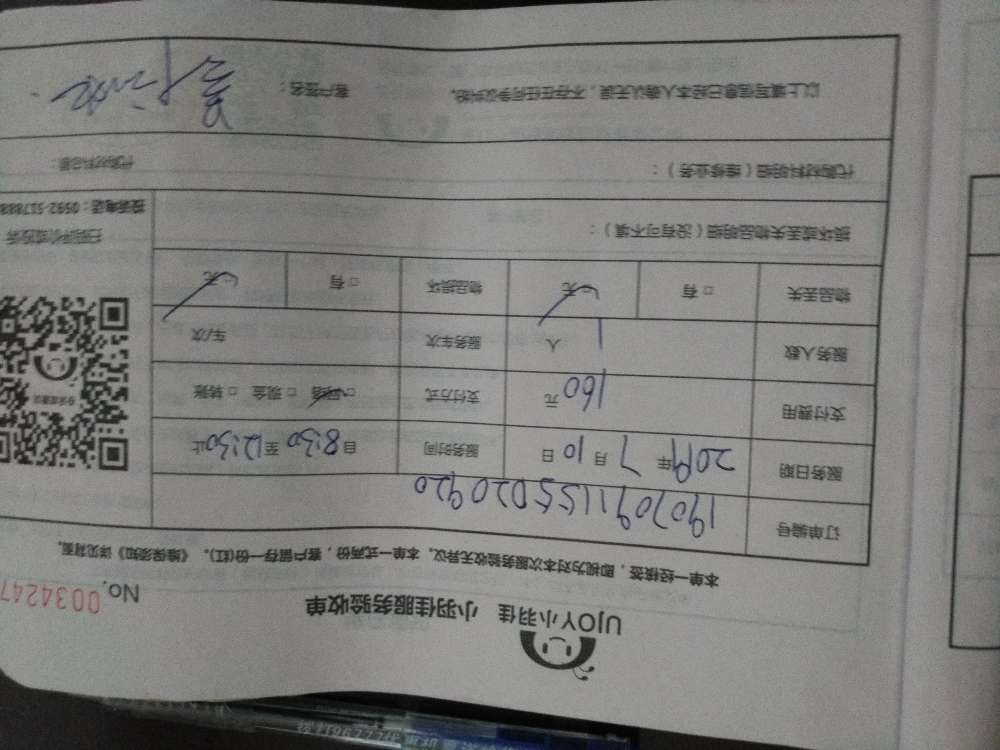 UJOY小羽佳 小羽佳服务验收单
No. 0034247
本单一经核签，即视为对本次服务验收无异议。本单一式两份，客户留存一份(红)。《维保须知》详见背面。
订单编号 1907091155020920
服务日期 2019年 7月 10日 服务时间 自 8:30 至 12:30 止
支付费用 160 元 支付方式 □网络 □现金 □转账
服务人数 1 人 服务车次 车/次
物品丢失 □有 □无 物品损坏 □有 □无
损坏或丢失物品明细（没有可不填）：
扫码评价或投诉
投诉电话：0592-5178888
代购材料明细（维修业务）： 代购材料总额：
以上填写信息已经本人确认无误，不存在任何争议纠纷。 客户签名：